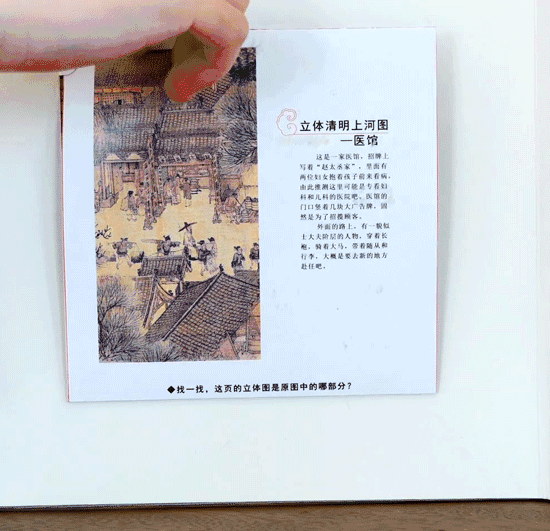 立体清明上河图
—医馆
这是一家医馆，招牌上
写着“赵太丞家”，里面有
两位妇女抱着孩子前来看病，
由此推测这里可能是专看妇
科和儿科的医院吧。医馆的
门口竖着几块大广告牌，固
然是为了招揽顾客。
外面的路上，有一貌似
士大夫阶层的人物，穿着长
袍，骑着大马，带着随从和
行李，大概是要去新的地方
赴任吧。
◆找一找，这页的立体图是原图中的哪部分？